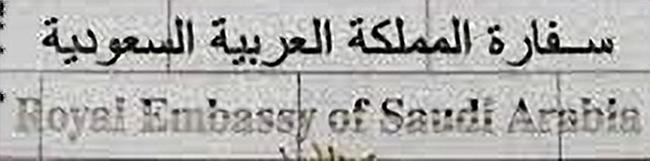 سفارة المملكة العربية السعودية
Royal Embassy of Saudi Arabia